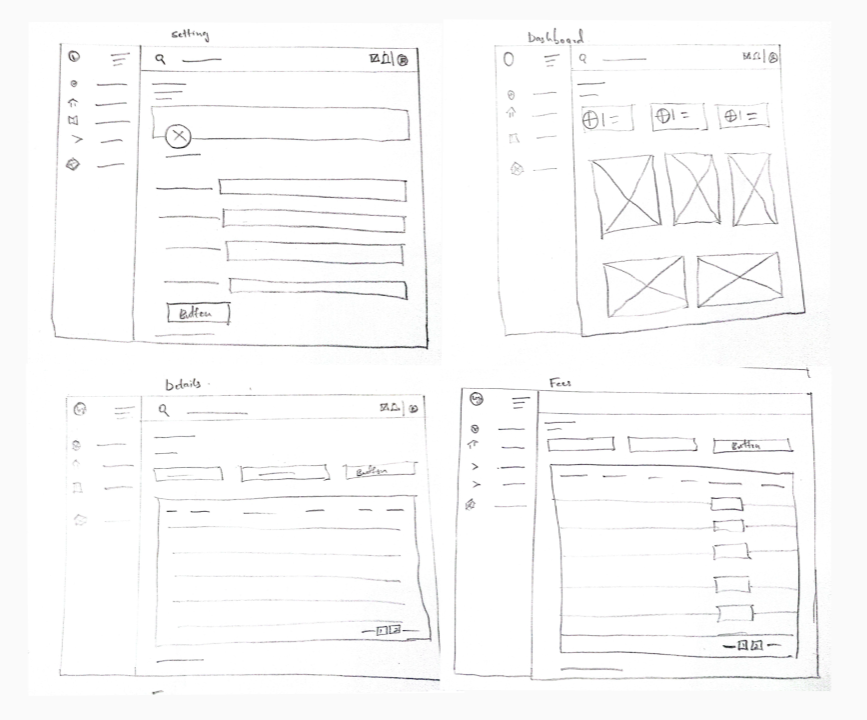 Setting
Button
Dashboard
Details
Button
1 2
Fees
Button
1 2